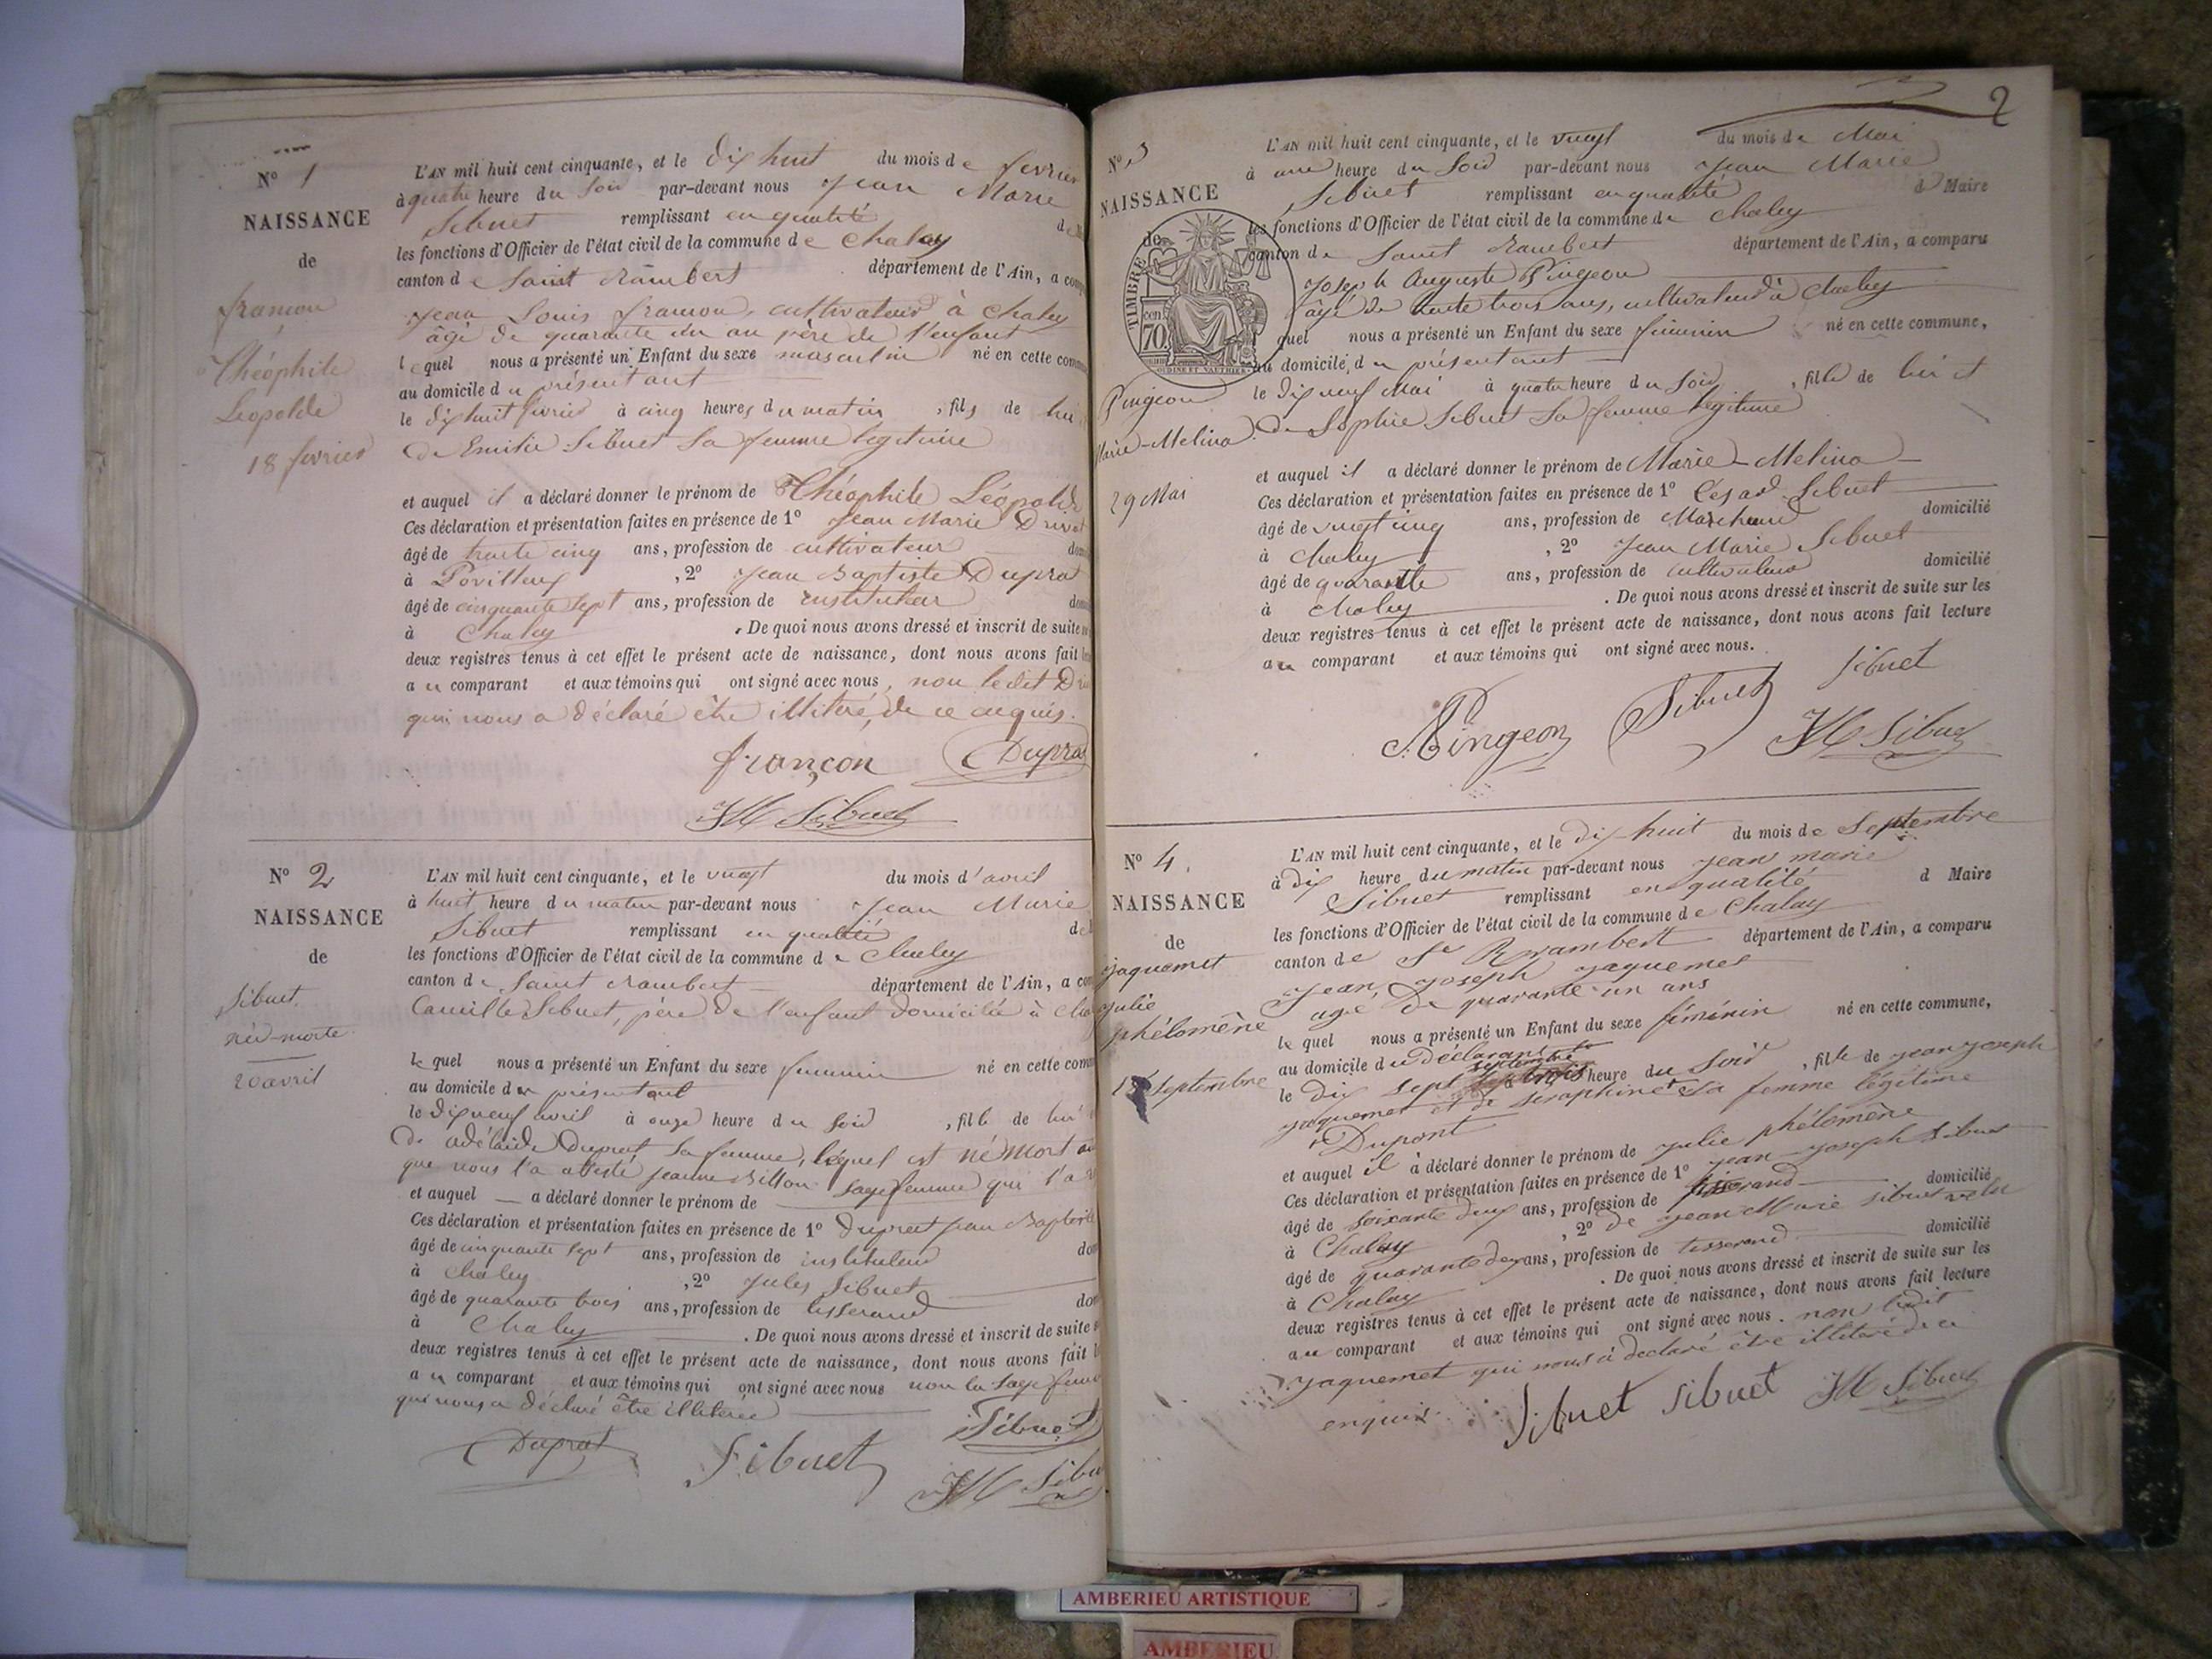 N° 1
NAISSANCE
de
françon
Théophile
Léopolde
18 fevrier
L'AN mil huit cent cinquante, et le dix huit du mois de fevrier
à quatre heure du soir par-devant nous Jean Marie
Sibuet remplissant en qualité de
les fonctions d'Officier de l'état civil de la commune de Chaley
canton de Saint Rambert département de l'Ain, a comp
Jean Louis françon, cultivateur à Chaley
âgé de quarante un an père de l'enfant
lequel nous a présenté un Enfant du sexe masculin né en cette comm
au domicile du présentant
le dix huit fevrier à cinq heures du matin, fils de lui
de Emilie Sibuet sa femme légitime
et auquel il a déclaré donner le prénom de Théophile Léopolde
Ces déclaration et présentation faites en présence de 1° Jean Marie Drivet
âgé de trente cinq ans, profession de cultivateur dom
à , 2° Jean Baptiste Duprat
âgé de cinquante sept ans, profession de instituteur dom
à Chaley . De quoi nous avons dressé et inscrit de suite
deux registres tenus à cet effet le présent acte de naissance, dont nous avons fait
au comparant et aux témoins qui ont signé avec nous, non ledit Dri
qui nous a déclaré être illitéré, de ce enquis.
françon Duprat
JM Sibuet
N° 2
NAISSANCE
de
Sibuet
née-morte
20 avril
L'AN mil huit cent cinquante, et le vingt du mois d'avril
à huit heure du matin par-devant nous Jean Marie
Sibuet remplissant en qualité de
les fonctions d'Officier de l'état civil de la commune de Chaley
canton de Saint Rambert département de l'Ain, a com
Camille Sibuet, père de l'enfant domicilié à Cha
le quel nous a présenté un Enfant du sexe feminin né en cette comm
au domicile du présentant
le dix neuf avril à onze heure du soir, fille de lui
de Adélaïde Duprat sa femme, lequel est né mort
que nous l'a attesté Jeanne Billon sage femme qui l'a
et auquel — a déclaré donner le prénom de
Ces déclaration et présentation faites en présence de 1° Duprat Jean Baptiste
âgé de cinquante sept ans, profession de instituteur dom
à Chaley , 2° Jules Sibuet
âgé de quarante trois ans, profession de tisserand dom
à Chaley . De quoi nous avons dressé et inscrit de suite
deux registres tenus à cet effet le présent acte de naissance, dont nous avons fait
au comparant et aux témoins qui ont signé avec nous non la sage femme
qui nous a déclaré être illiterée
Duprat Sibuet Sibuet
JM Sibuet
2
N° 3
NAISSANCE
de
TIMBRE
70 cen
OUDINÉ ET VAUTHIER
Pingeon
Marie-Melina
29 Mai
L'AN mil huit cent cinquante, et le vingt du mois de Mai
à une heure du soir par-devant nous Jean Marie
Sibuet remplissant en qualité d Maire
les fonctions d'Officier de l'état civil de la commune de Chaley
canton de Saint Rambert département de l'Ain, a comparu
Joseph Auguste Pingeon
âgé de trente trois ans, cultivateur à Chaley
quel nous a présenté un Enfant du sexe féminin né en cette commune,
au domicile du présentant
le dix neuf Mai à quatre heure du soir, fille de lui et
de Sophie Sibuet sa femme légitime
et auquel il a déclaré donner le prénom de Marie-Melina
Ces déclaration et présentation faites en présence de 1° Cesard Sibuet
âgé de vingt cinq ans, profession de Marchand domicilié
à Chaley , 2° Jean Marie Sibuet
âgé de quarante ans, profession de cultivateur domicilié
à Chaley . De quoi nous avons dressé et inscrit de suite sur les
deux registres tenus à cet effet le présent acte de naissance, dont nous avons fait lecture
au comparant et aux témoins qui ont signé avec nous.
Pingeon Sibuet Sibuet
JM Sibuet
N° 4.
NAISSANCE
de
jaquemet
julie
phélomène
Septembre
L'AN mil huit cent cinquante, et le dix huit du mois de Septembre
à dix heure du matin par-devant nous jean marie
Sibuet remplissant en qualité d Maire
les fonctions d'Officier de l'état civil de la commune de Chalay
canton de St Rambert département de l'Ain, a comparu
jean joseph jaquemet
agé de quarante un ans
le quel nous a présenté un Enfant du sexe féminin né en cette commune,
au domicile du déclarant
le dix sept septembre heure du Soir, fille de jean joseph
jaquemet et de seraphine sa femme légitime
Dupont
et auquel il a déclaré donner le prénom de julie phélomène
Ces déclaration et présentation faites en présence de 1° jean-joseph Sibuet
âgé de soixante deux ans, profession de tisserand domicilié
à Chalay , 2° de jean Marie Sibuet
âgé de quarante deux ans, profession de tisserand domicilié
à Chalay . De quoi nous avons dressé et inscrit de suite sur les
deux registres tenus à cet effet le présent acte de naissance, dont nous avons fait lecture
au comparant et aux témoins qui ont signé avec nous. non ledit
jaquemet qui nous a déclaré être illitéré de ce
enquis
Sibuet Sibuet JM Sibuet
AMBERIEU ARTISTIQUE
AMBERIEU